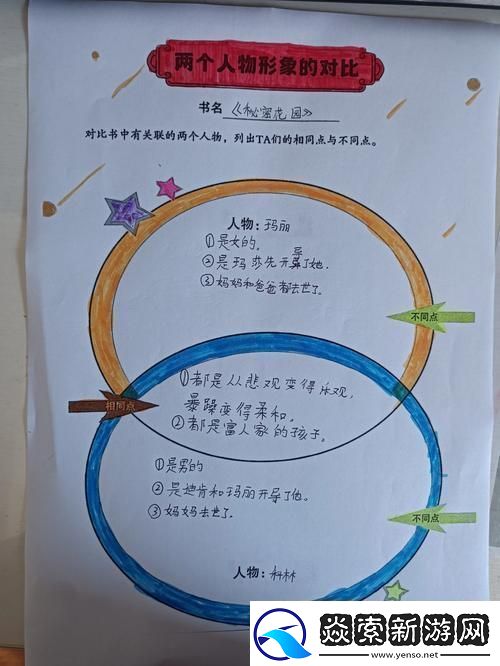 两个人物形象的对比
书名 《秘密花园》
对比书中有关联的两个人物，列出TA们的相同点与不同点。
人物：玛丽
①是女的。
导
②是玛莎先开导了她.
③妈妈和爸爸都去世了。
不同点
①都是从悲观变得乐观，
暴躁变得柔和。
相同点
②都是富人家的孩子。
①是男的
②是迪肯和玛丽开导了他。
③妈妈去世了.
不同点
人物：科林
焱索新游网
www.yenso.net